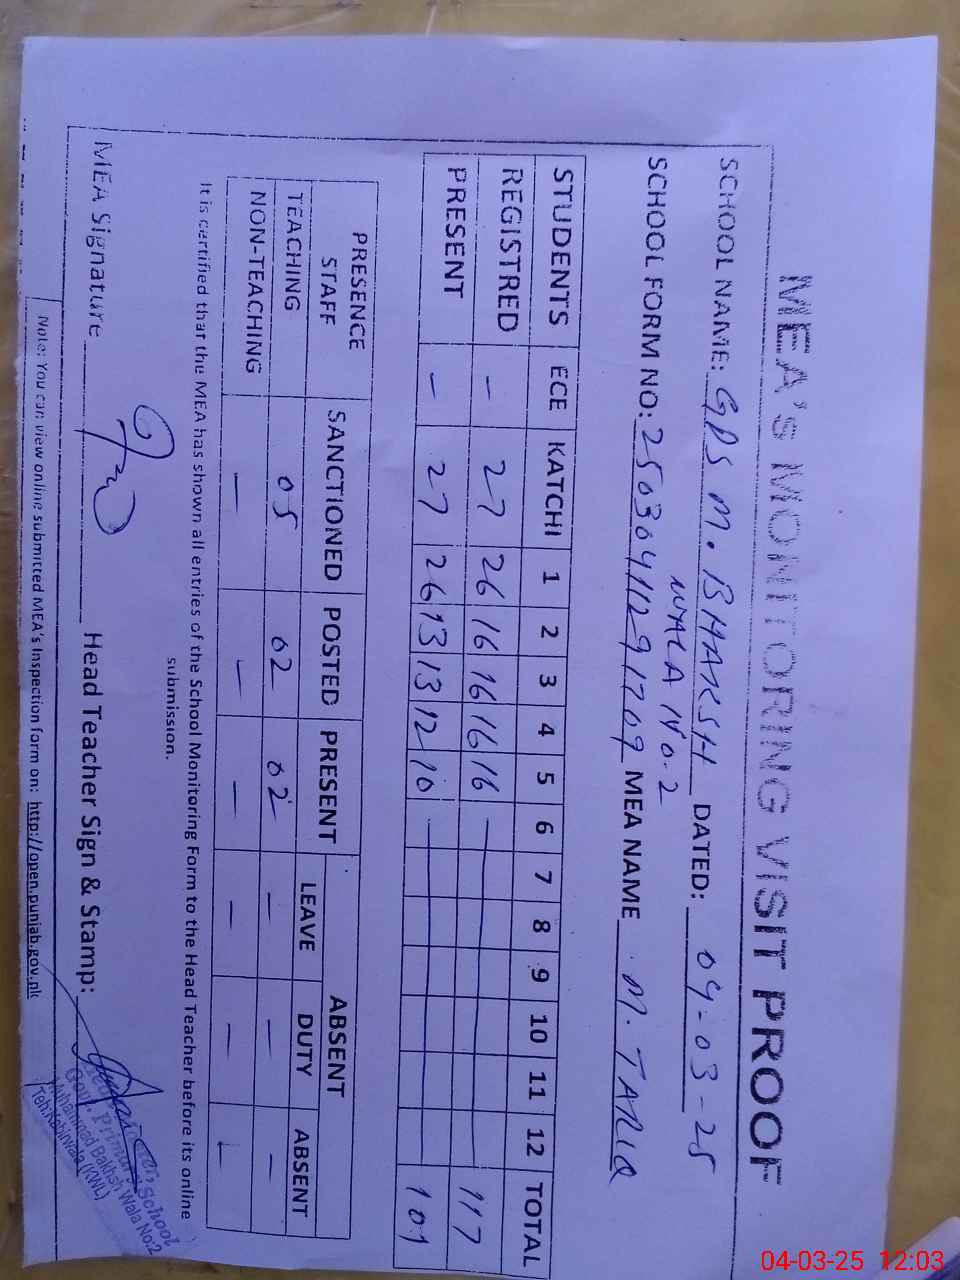 MEA's MONITORING VISIT PROOF
SCHOOL NAME: GPS M. BHAKSH DATED: 04-03-25
WALA No. 2
SCHOOL FORM NO: 25030411291709 MEA NAME M. TARIQ
STUDENTS ECE KATCHI 1 2 3 4 5 6 7 8 9 10 11 12 TOTAL
REGISTRED - 27 26 16 16 16 16 - 117
PRESENT - 27 26 13 13 12 10 - 101
PRESENCE STAFF SANCTIONED POSTED PRESENT ABSENT
LEAVE DUTY ABSENT
TEACHING 05 02 02 - - -
NON-TEACHING - - - - - -
It is certified that the MEA has shown all entries of the School Monitoring Form to the Head Teacher before its online
submission.
MEA Signature Head Teacher Sign & Stamp:
Note: You can view online submitted MEA's Inspection form on: http://open.punjab.gov.pk
Govt. Primary School
Muhammad Bakhsh Wala No:2
Teh:Kabirwala (KWL)
04-03-25 12:03